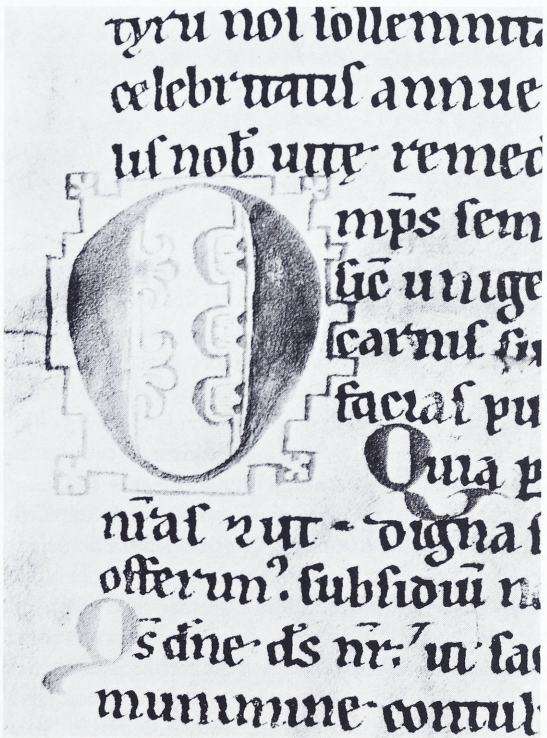 tyrũ noſ ſollemnita
celebritatiſ annue
uſ nob̃ uitę remed
Omp̃s ſem
ſic̃ unige
carniſ ſu
faciaſ pu
Quia p
nr̃aſ xp̃i digna ſ
offerim⁹. ſubſidiũ n
Qs̃ dñe d̃s nr̃. ut ſac
munimine contul